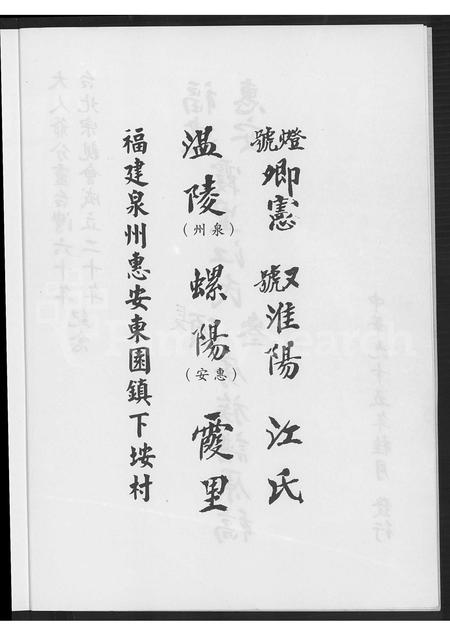 燈號 卿憲 又號 淮陽 江氏
溫陵(泉州) 螺陽(惠安) 霞里
福建泉州惠安東園鎮下垵村